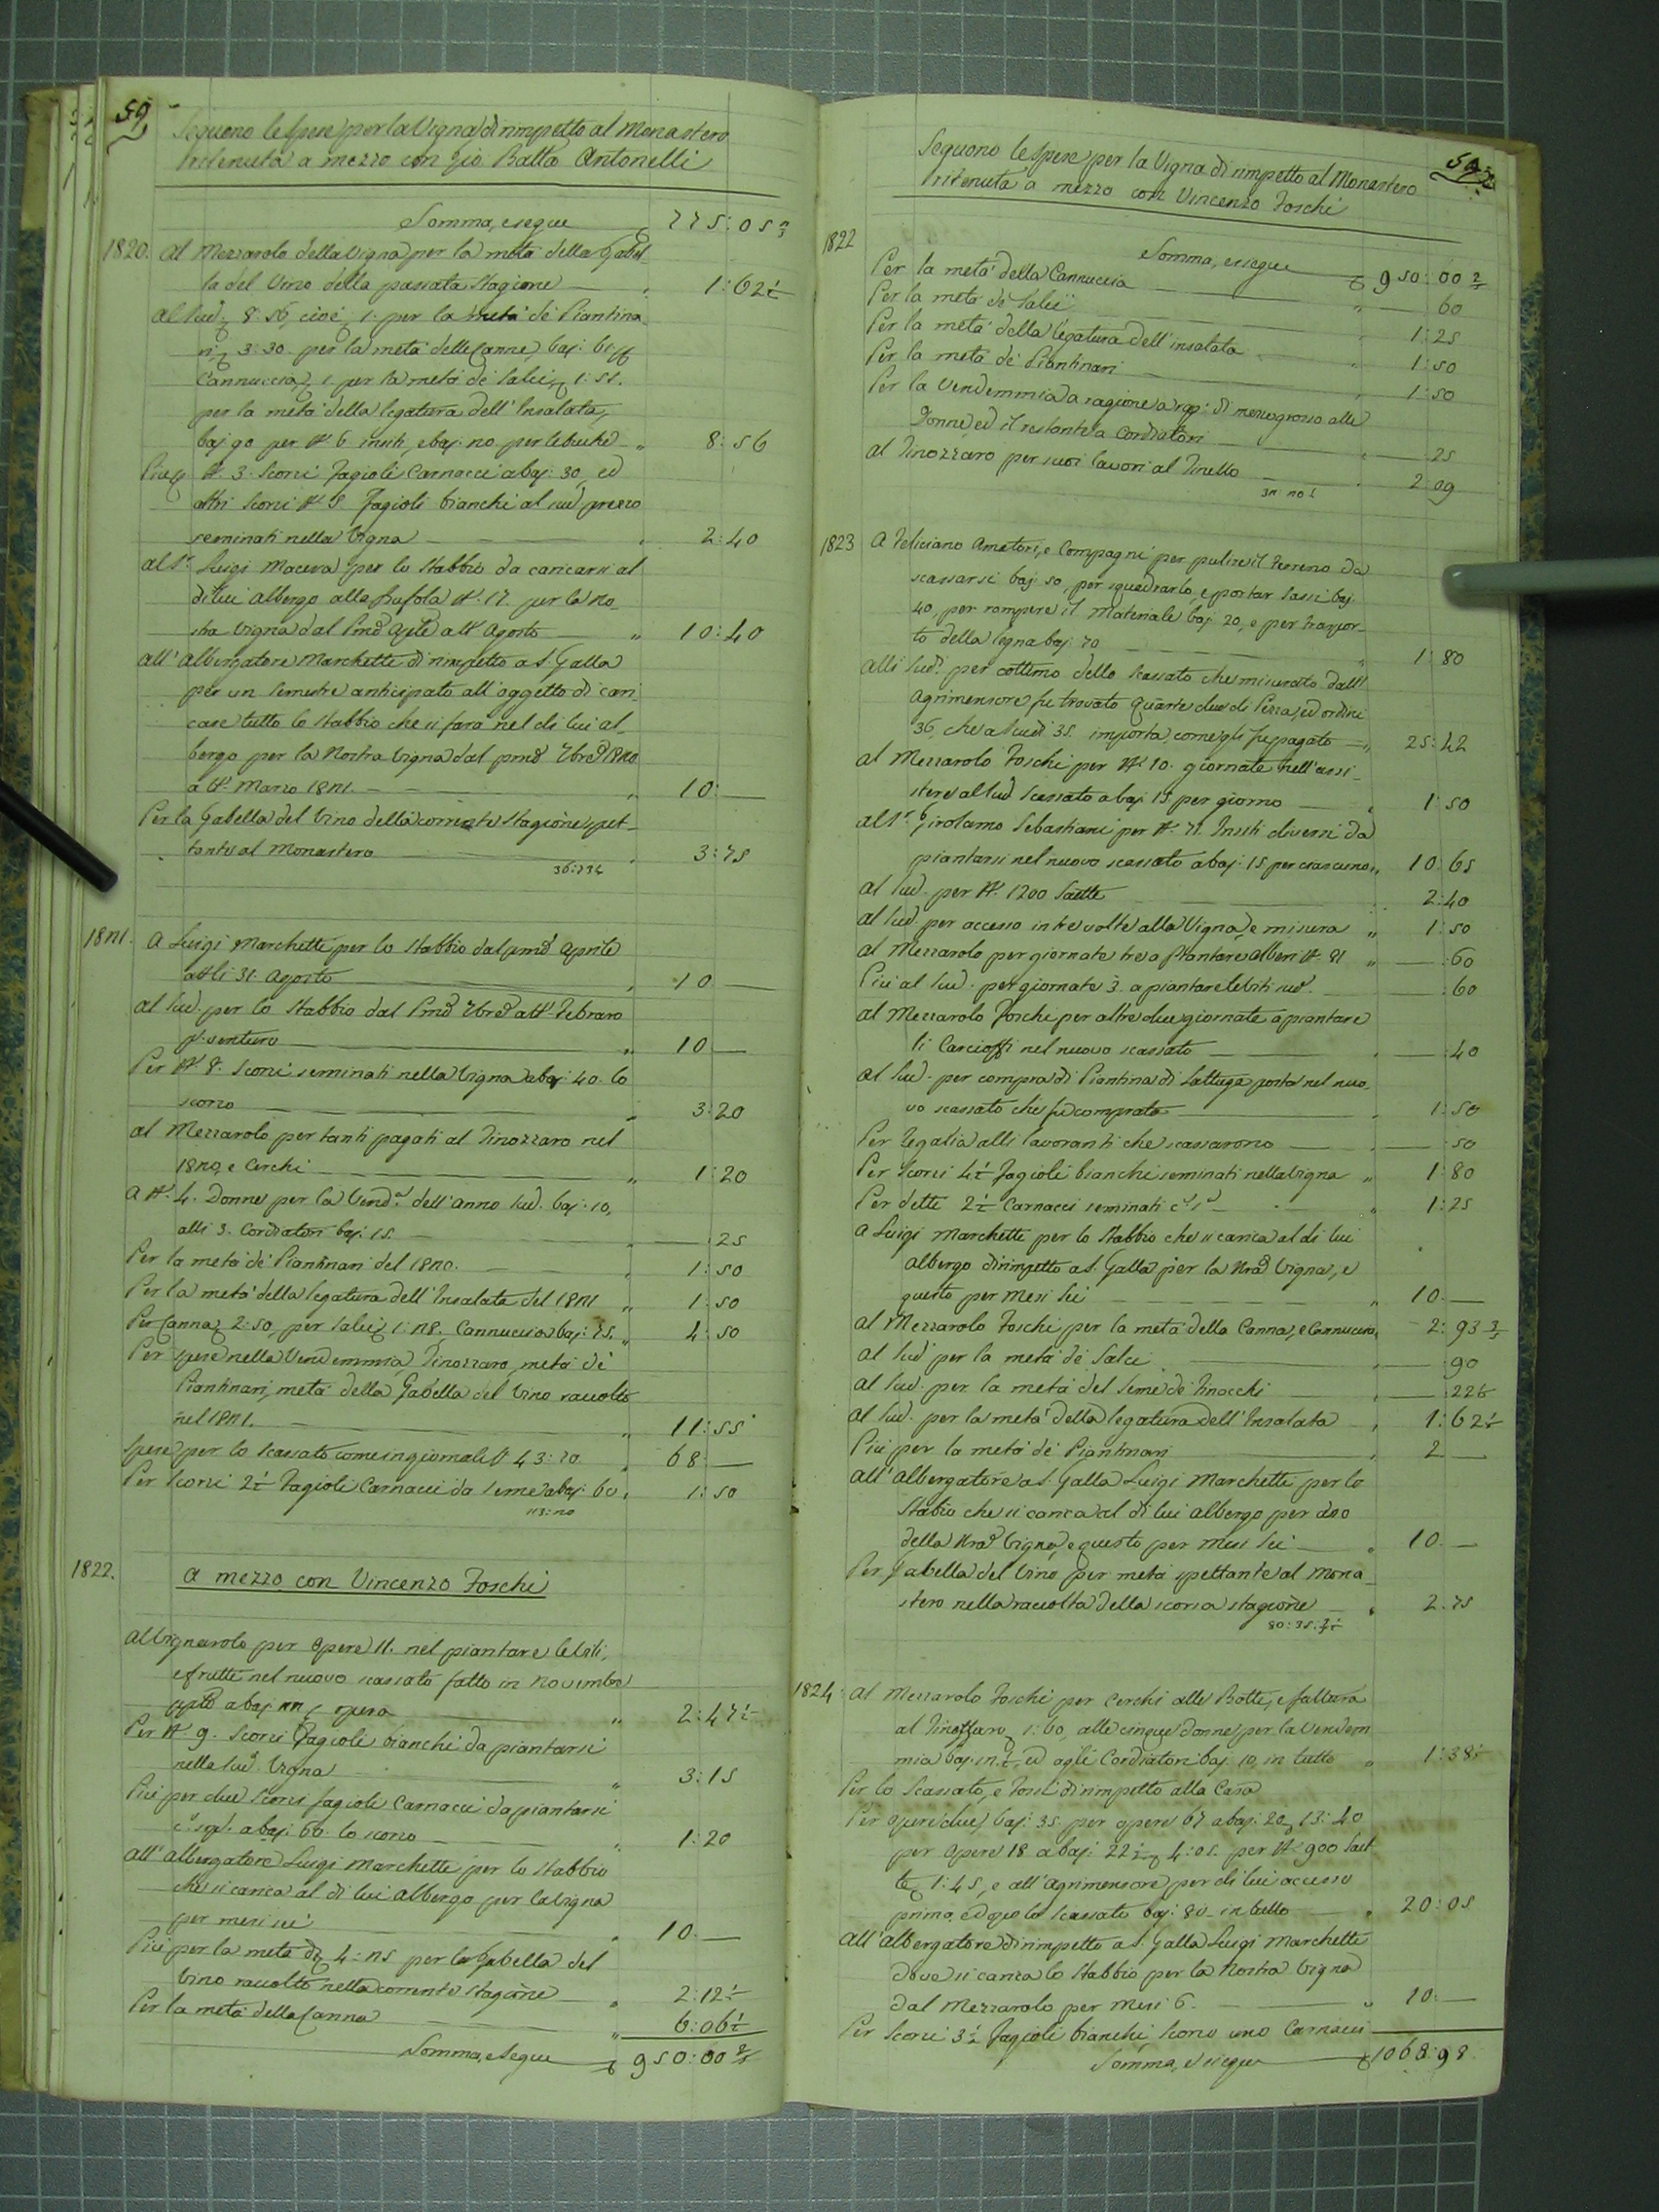 59
Seguono le Spese per la Vigna di rimpetto al Monastero
ritenuta a mezzo con Gio. Batta Antonelli
Somma, e segue 775:05
1820. Al Mezzarolo della Vigna per la metà della Gabel-
la del Vino della passata Stagione 1:62½
Al Sud. 8:56, cioè 1: per la metà de Piantina-
ri, 3:30 per la metà delle Canne, baj: 60 pp
Cannuccia, 1. per la metà de Salci, 1:51.
per la metà della legatura dell'Insalata,
baj. 90 per N. 6 insiti, e baj. 20 per le buche 8:56
Più N. 3. Scorzi Fagioli Carnacci a baj: 30, ed
altri Scorzi N. 5. Fagioli bianchi al sud. prezzo
seminati nella Vigna 2:40
Al Sr. Luigi Maceva per lo Stabbio da caricarsi al
di lui Albergo alla Bufola N. 17. per la no-
stra Vigna dal Pmo Aprile all' Agosto 10:40
All'Albergatore Marchetti di rimpetto a S. Galla
per un Semestre anticipato all'oggetto di cari-
care tutto lo Stabbio che si farà nel di lui al-
bergo per la Nostra Vigna dal pmo 7bre 1820
a tt. Marzo 1821. 10:
Per la Gabella del Vino della corrente Stagione spet-
tante al Monastero 3:75
1821. A Luigi Marchetti per lo Stabbio dal pmo Aprile
alli 31. Agosto 10
Al Sud. per lo Stabbio dal Pmo 7bre a tt. Febraro
p. venturo 10
Per N. 8. Scorzi seminati nella Vigna a baj: 40. lo
scorzo 3:20
Al Mezzarolo per tanti pagati al Tinozzaro nel
1820, e Cerchi 1:20
A N. 4. Donne per la Vend.a dell'anno Sud. baj: 10,
alli 3. Cordiatori baj. 15. 25
Per la metà de Piantinari del 1820. 1:50
Per la metà della legatura dell'Insalata del 1821 1:50
Per Canna 2:50, per Salci 1:28. Cannuccia baj: 75. 4:50
Per spese nella Vendemmia, Tinozzaro, metà de
Piantinari, metà della Gabella del Vino raccolto
nel 1821. 11:55
Spese per lo scassato come in giornale N 43:20 68
Per Scorzi 2½ Fagioli Carnacci da Seme a baj. 60. 1:50
113:20
1822. A mezzo con Vincenzo Foschi
Al Vignarolo per Opere 11. nel piantare le Viti,
e frutti nel nuovo scassato fatto in Novembre
a baj 22½ opera 2:47½
Per N. 9. Scorzi Fagioli bianchi da piantarsi
nella Sud. Vigna 3:15
Più per due Scorzi fagioli Carnacci da piantarsi
a baj. 60. lo scorzo 1:20
All'Albergatore Luigi Marchetti per lo Stabbio
che si carica al di lui Albergo per la Vigna
per mesi sei 10
Più per la metà di 4:25 per la Gabella del
Vino raccolto nella corrente Stagione 2:12½
Per la metà della Canna 6:06½
Somma, e Segue 950:00
Seguono le Spese per la Vigna di rimpetto al Monastero
ritenuta a mezzo con Vincenzo Foschi
1822 Somma, e segue 950:00
Per la metà della Cannuccia
Per la metà de Salci 60
Per la metà della legatura dell'insalata 1:25
Per la metà de Piantinari 1:50
Per la Vendemmia a ragione di mezzo grosso alle 1:50
Donne, ed il restante a Cordiatori 25
Al Tinozzaro per suoi lavori al Tinello 2:09
1823 A Feliciano Amatori, e Compagni per pulire il terreno da
scassarsi baj. 50, per squadrarlo, e portar Sassi baj.
40, per rompere il Materiale baj. 20, e per traspor-
to della legna baj. 70 1:80
Alli Sudi. per cottimo dello scassato che misurato dall'
Agrimensore fu trovato quarte due di Pezza, ed ordini
36, che a Scudi 35. importa, come gli fu pagato 25:42
Al Mezzarolo Foschi per N. 10. giornate nell'assi-
stere al Sud. Scassato a baj. 15 per giorno 1:50
Al Sr. Girolamo Sebastiani per N. 71. Insiti diversi da
piantarsi nel nuovo scassato a baj: 15 per ciascuno 10:65
Al Sud. per N. 1200 Saette 2:40
Al Sud. per accesso in tre volte alla Vigna, e misura 1:50
Al Mezzarolo per giornate tre a piantare Alberi N. 71 :60
Più al Sud. per giornate 3. a piantare le Viti sud. :60
Al Mezzarolo Foschi per altre due giornate a piantare
li Carcioffi nel nuovo scassato :40
Al Sud. per compra di Piantina di Lattuga posta nel nuo-
vo scassato che fu comprata 1:50
Per Regalia alli lavoranti che scassarono :50
Per Scorzi 4½ Fagioli bianchi seminati nella Vigna 1:80
Per dette 2½ Carnacci seminati 1:25
A Luigi Marchetti per lo Stabbio che si carica al di lui
albergo dirimpetto a S. Galla per la Nra Vigna, e
questo per Mesi Sei 10
Al Mezzarolo Foschi per la metà della Canna, e Cannuccia 2:93
Al Sud. per la metà de Salci :90
Al Sud. per la metà del Seme de Finocchi :22½
Al Sud. per la metà della legatura dell'Insalata 1:62½
Più per la metà de Piantinari 2
All'Albergatore a S. Galla Luigi Marchetti per lo
Stabio che si carica al di lui albergo per uso
della Nra Vigna, e questo per Mesi Sei 10
Per Gabella del Vino per metà spettante al Mona-
stero nella raccolta della scorsa stagione 2:75
1824: Al Mezzarolo Foschi per Cerchi alle Botti, e fattura
al Tinozzaro 1:60, alle cinque donne per la Vendem-
mia baj. 12½, ed agli Cordiatori baj. 10, in tutto 1:38½
Per lo Scassato, e Fossi dirimpetto alla Casa
Per opere due, baj: 35. per opere 67 a baj. 20, 13:40
per Opere 18 a baj: 22½ 4:05. per N. 900 Saet-
te 1:45, e all'Agrimensore per di lui accesso
prima, e dopo lo Scassato baj: 80 in tutto 20:05
All'Albergatore dirimpetto a S. Galla Luigi Marchetti
dove si carica lo Stabbio per la Nostra Vigna
dal Mezzarolo per Mesi 6. 10
Per Scorzi 3½ Fagioli bianchi, Scorzo uno Carnacci
Somma, e segue 1068:98